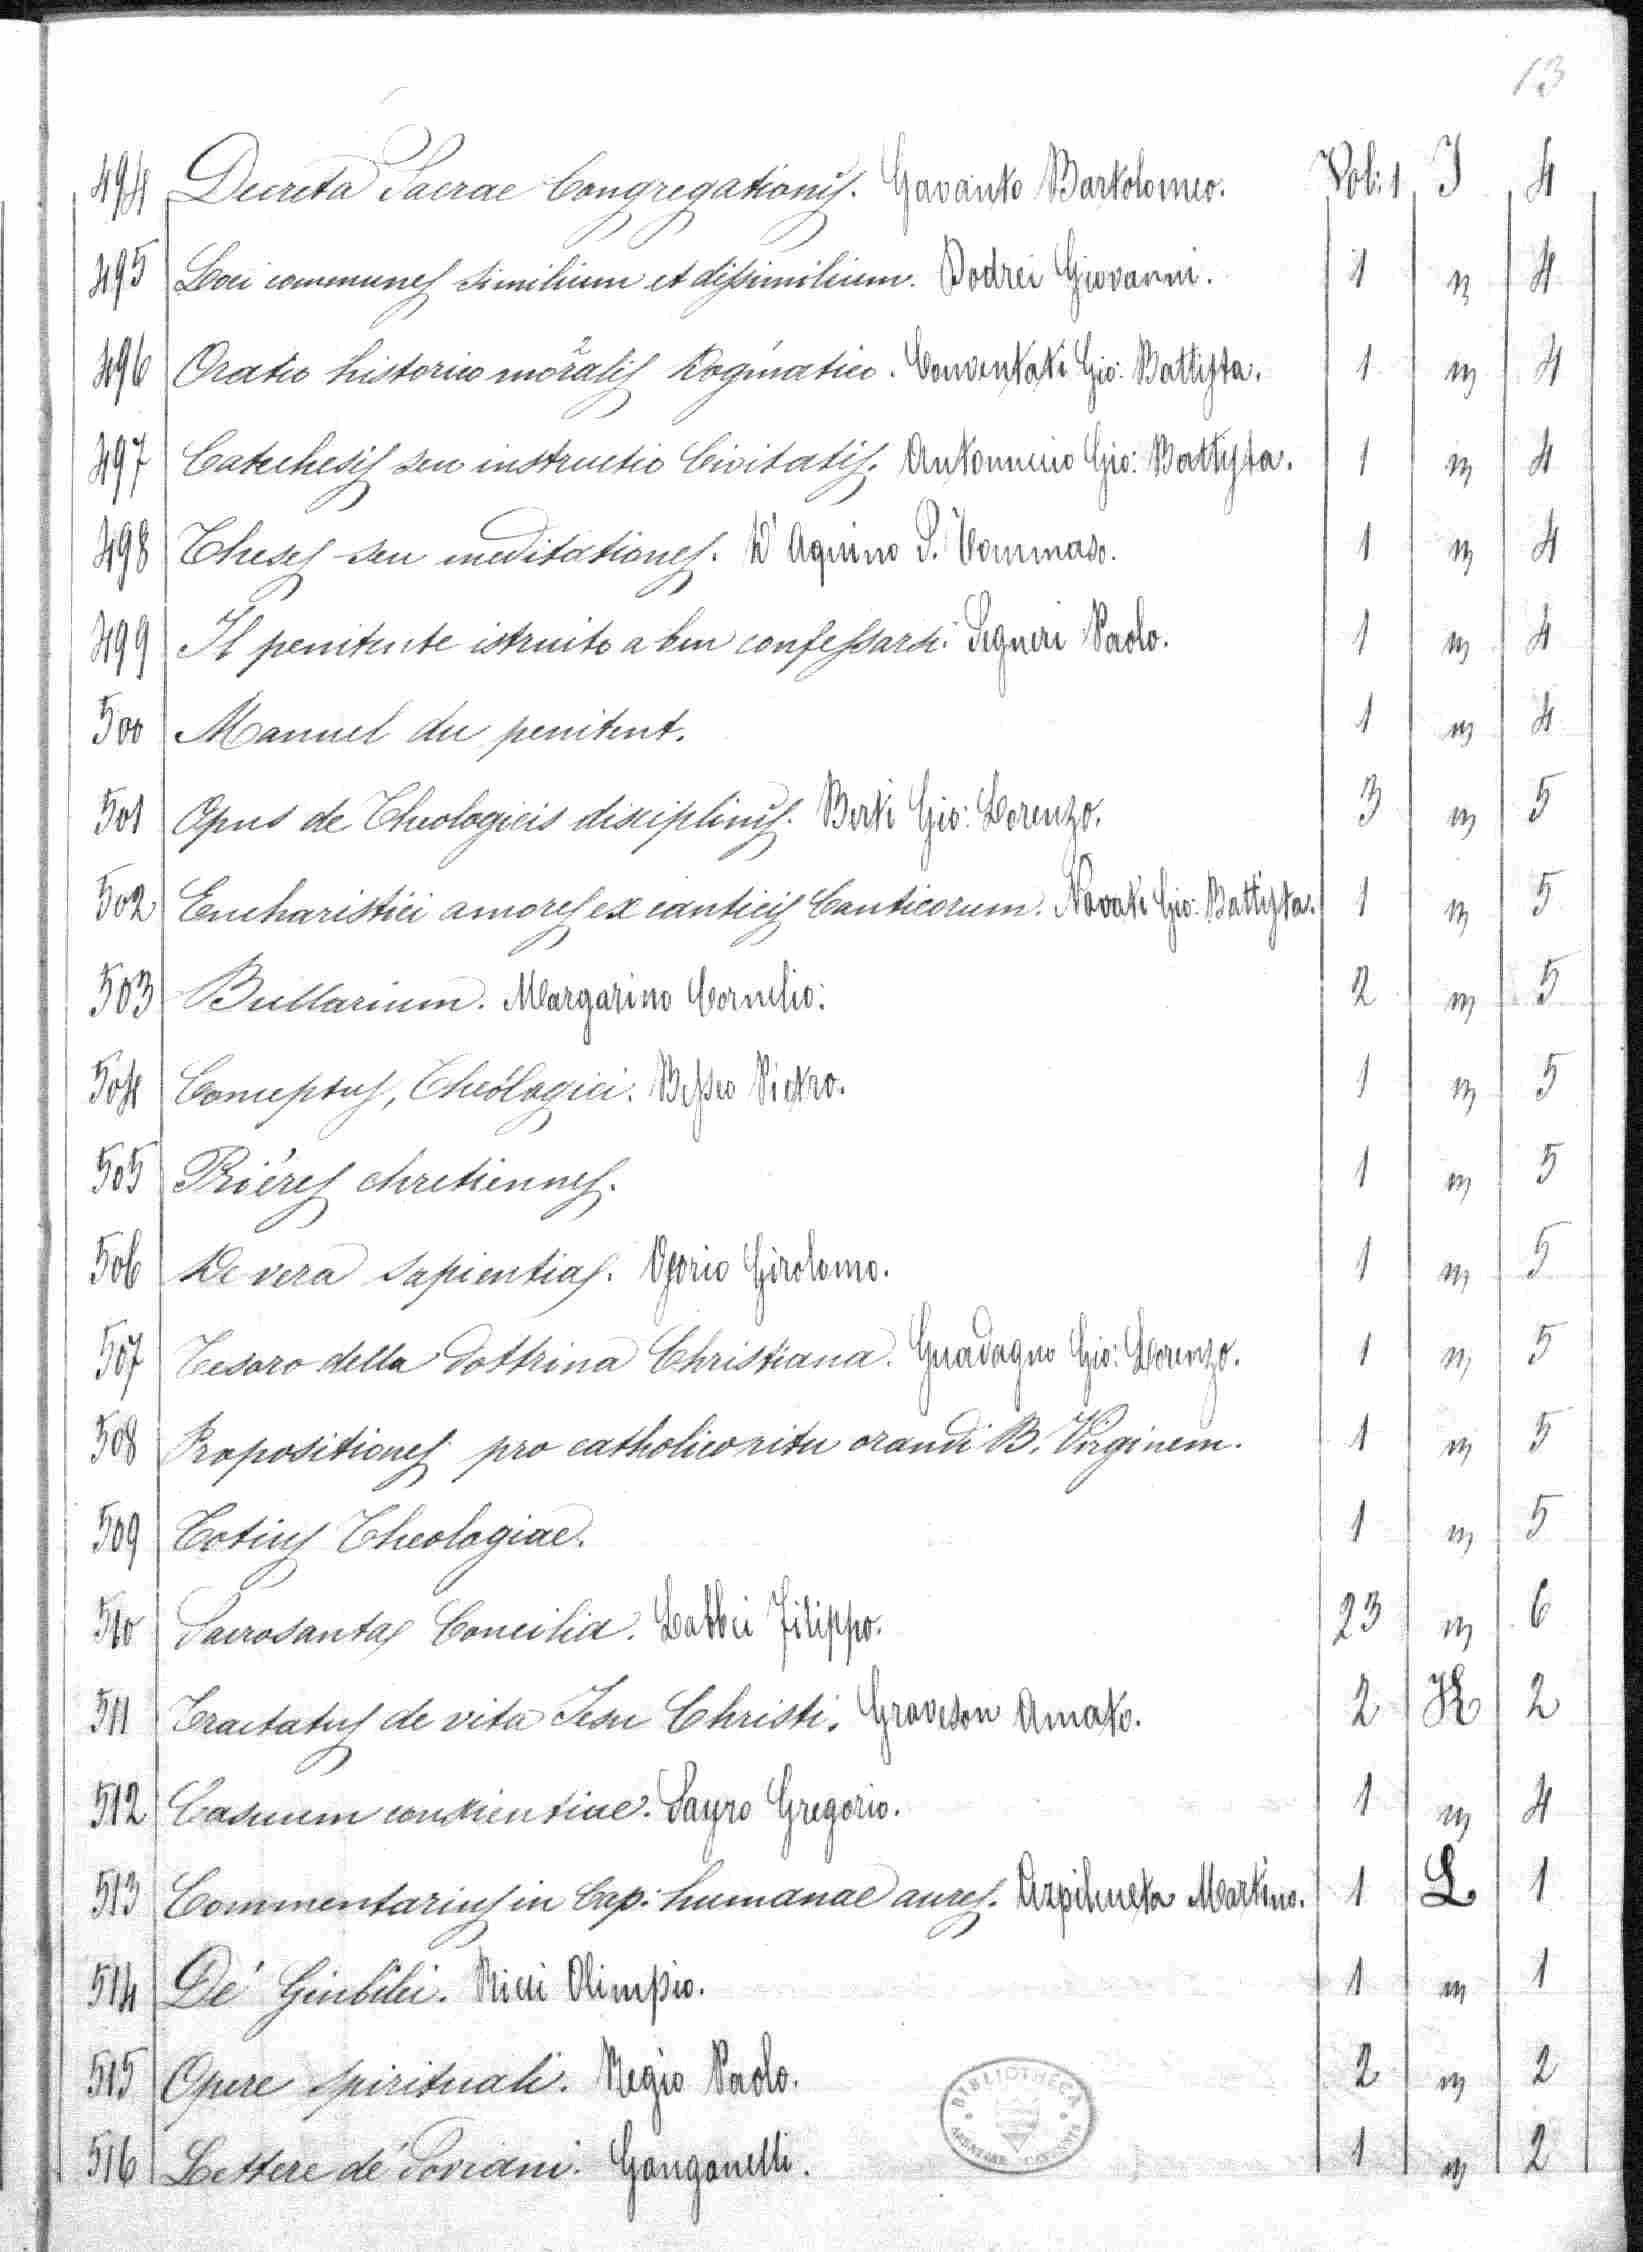 13
494 Decreta Sacrae Congregationis. Gavanto Bartolomeo. Vol: 1 J 4
495 Loci communes similium et dissimilium. Dodrei Giovanni. 1 " 4
496 Oratio historico moralis Dogmatico. Conventati Gio: Battista. 1 " 4
497 Catechesis seu instructio Civitatis. Antonucio Gio: Battista. 1 " 4
498 Theses seu meditationes. D'Aquino S. Tommaso. 1 " 4
499 Il penitente istruito a ben confessarsi. Segneri Paolo. 1 " 4
500 Manuel du penitent. 1 " 4
501 Opus de Theologicis disciplinis. Berti Gio: Lorenzo. 3 " 5
502 Eucharistici amores ex canticis Canticorum. Novati Gio: Battista. 1 " 5
503 Bullarium. Margarino Cornelio: 2 " 5
504 Conceptus, Theologici. Besseo Pietro. 1 " 5
505 Prières chretiennes. 1 " 5
506 De vera sapientias. Osorio Girolomo. 1 " 5
507 Tesoro della dottrina Christiana. Guadagno Gio: Lorenzo. 1 " 5
508 Propositiones pro catholico ritu orandi B. Virginem. 1 " 5
509 Totius Theologiae. 1 " 5
510 Sacrosantas Concilia. Labbei Filippo. 23 " 6
511 Tractatus de vita Jesu Christi. Graveson Amato. 2 K 2
512 Casuum conscientiae. Sayro Gregorio. 1 " 4
513 Commentarius in Cap: humanae aures. Azpilcueta Martino. 1 L 1
514 De' Giubilei. Ricci Olimpio. 1 " 1
515 Opere spirituali. Regio Paolo. 2 " 2
516 Lettere de' Sovrani. Ganganelli. 1 " 2
BIBLIOTHECA